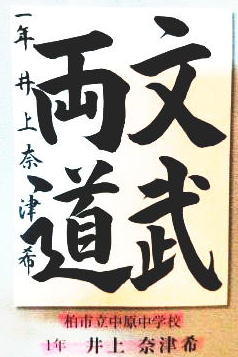 文武
両道
一年 井上奈津希
柏市立中原中学校
1年 井上 奈津希